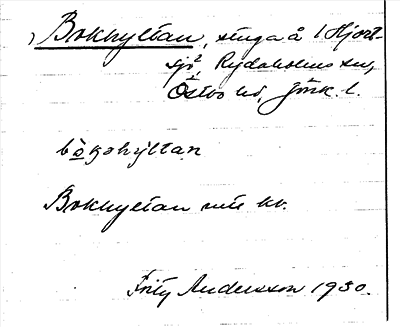 Bokhyltan, stuga å 1 Hjort-
sjö², Rydaholms sn,
Östbo hd, Jönk. l.
bo̲gəhyltan
Bokhyltan ute hv.
Fritz Andersson 1930.